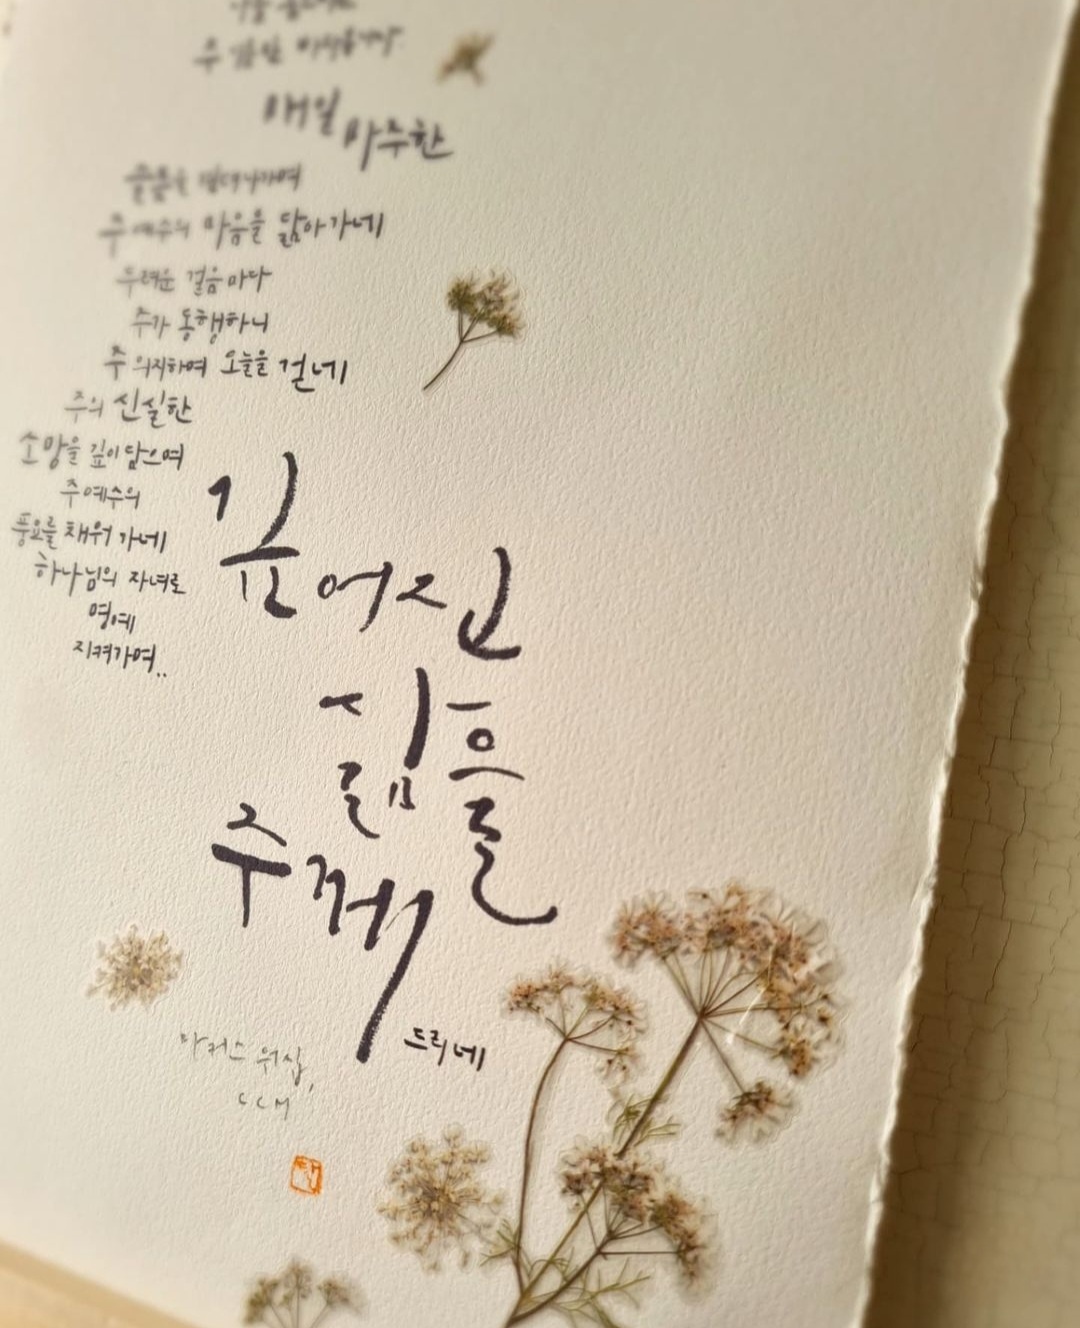 주 같은 마음을 가져
매일 마주한
슬픔을 견뎌나가며
주 예수의 마음을 닮아가네
두려운 걸음마다
주가 동행하니
주 의지하여 오늘을 걷네
주의 신실한
소망을 깊이 담으며
주 예수의
풍요를 채워 가네
하나님의 자녀로
명예
지켜가며..
깊어진
삶을
주께
드리네
마커스 워십,
CCM